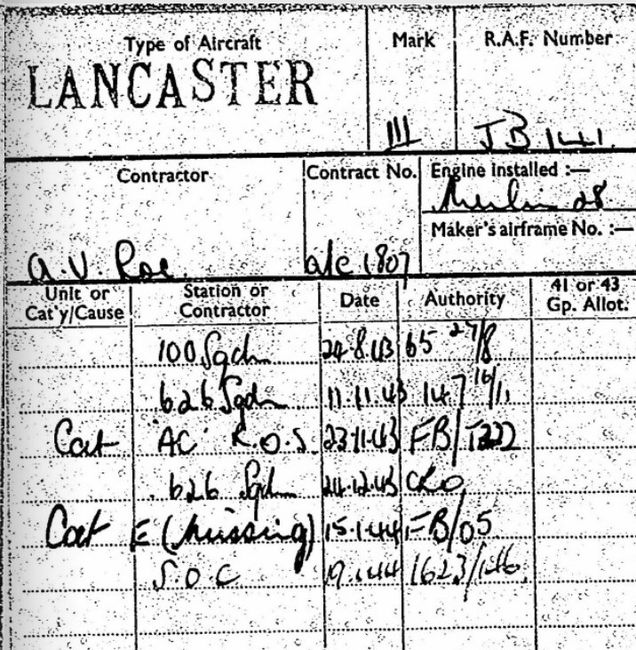 Type of Aircraft Mark R.A.F. Number
LANCASTER III JB 141.
Contractor Contract No. Engine installed :—
Merlin 28
Maker's airframe No. :—
A.V. Roe. a/c 1807
Unit or Cat'y/Cause Station or Contractor Date Authority 41 or 43 Gp. Allot.
100 Sqdn 24.8.43 65 27/8
626 Sqdn 11.11.43 147 16/11
Cat 'AC' R.O.S. 23.11.43 FB/
626 Sqdn 24.12.43
Cat E (Missing) 15.1.44 FB/05
S.O.C 19.1.44 1623/